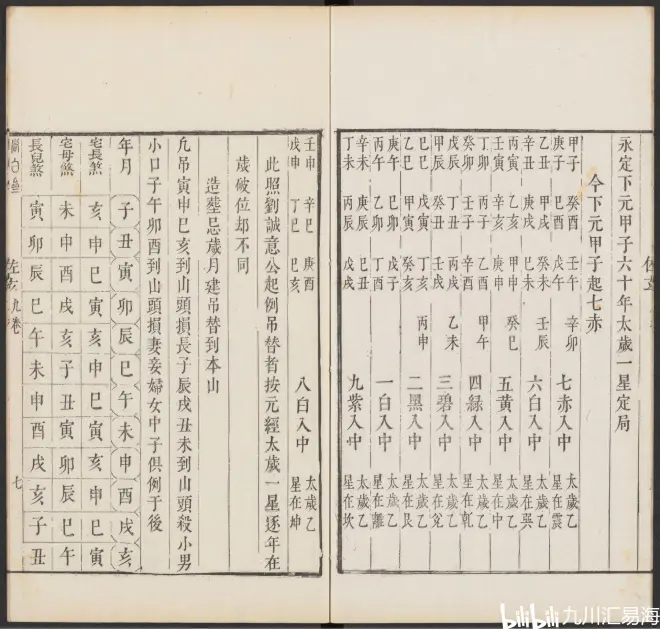 永定下元甲子六十年太歲一星定局
今下元甲子起七赤
甲子 癸酉 壬午 辛卯 七赤入中 太歲乙
庚子 己酉 戊午 星在震
乙丑 甲戌 癸未 壬辰 六白入中 太歲乙
辛丑 庚戌 己未 星在巽
丙寅 乙亥 甲申 癸巳 五黃入中 太歲乙
壬寅 辛亥 庚申 星在中
丁卯 丙子 乙酉 甲午 四緑入中 太歲乙
癸卯 壬子 辛酉 星在乾
戊辰 丁丑 丙戌 乙未 三碧入中 太歲乙
甲辰 癸丑 壬戌 星在兌
己巳 戊寅 丁亥 丙申 二黑入中 太歲乙
乙巳 甲寅 癸亥 星在艮
庚午 己卯 戊子 一白入中 太歲乙
丙午 乙卯 丁酉 星在離
辛未 庚辰 己丑 九紫入中 太歲乙
丁未 丙辰 戊戌 星在坎
壬申 辛巳 庚寅 八白入中 太歲乙
戊申 丁巳 己亥 星在坤
此照劉誠意公起例吊替者按元經太歲一星逐年在
歲破位却不同
造塟忌歲月建吊替到本山
凡吊寅申巳亥到山頭損長子辰戌丑未到山頭殺小男
小口子午卯酉到山頭損妻妾婦女中子俱例于後
年月 子 丑 寅 卯 辰 巳 午 未 申 酉 戌 亥
宅長煞 亥 申 巳 寅 亥 申 巳 寅 亥 申 巳 寅
宅母煞 未 申 酉 戌 亥 子 丑 寅 卯 辰 巳 午
長兒煞 寅 卯 辰 巳 午 未 申 酉 戌 亥 子 丑
九卷 七
bilibili 九川汇易海